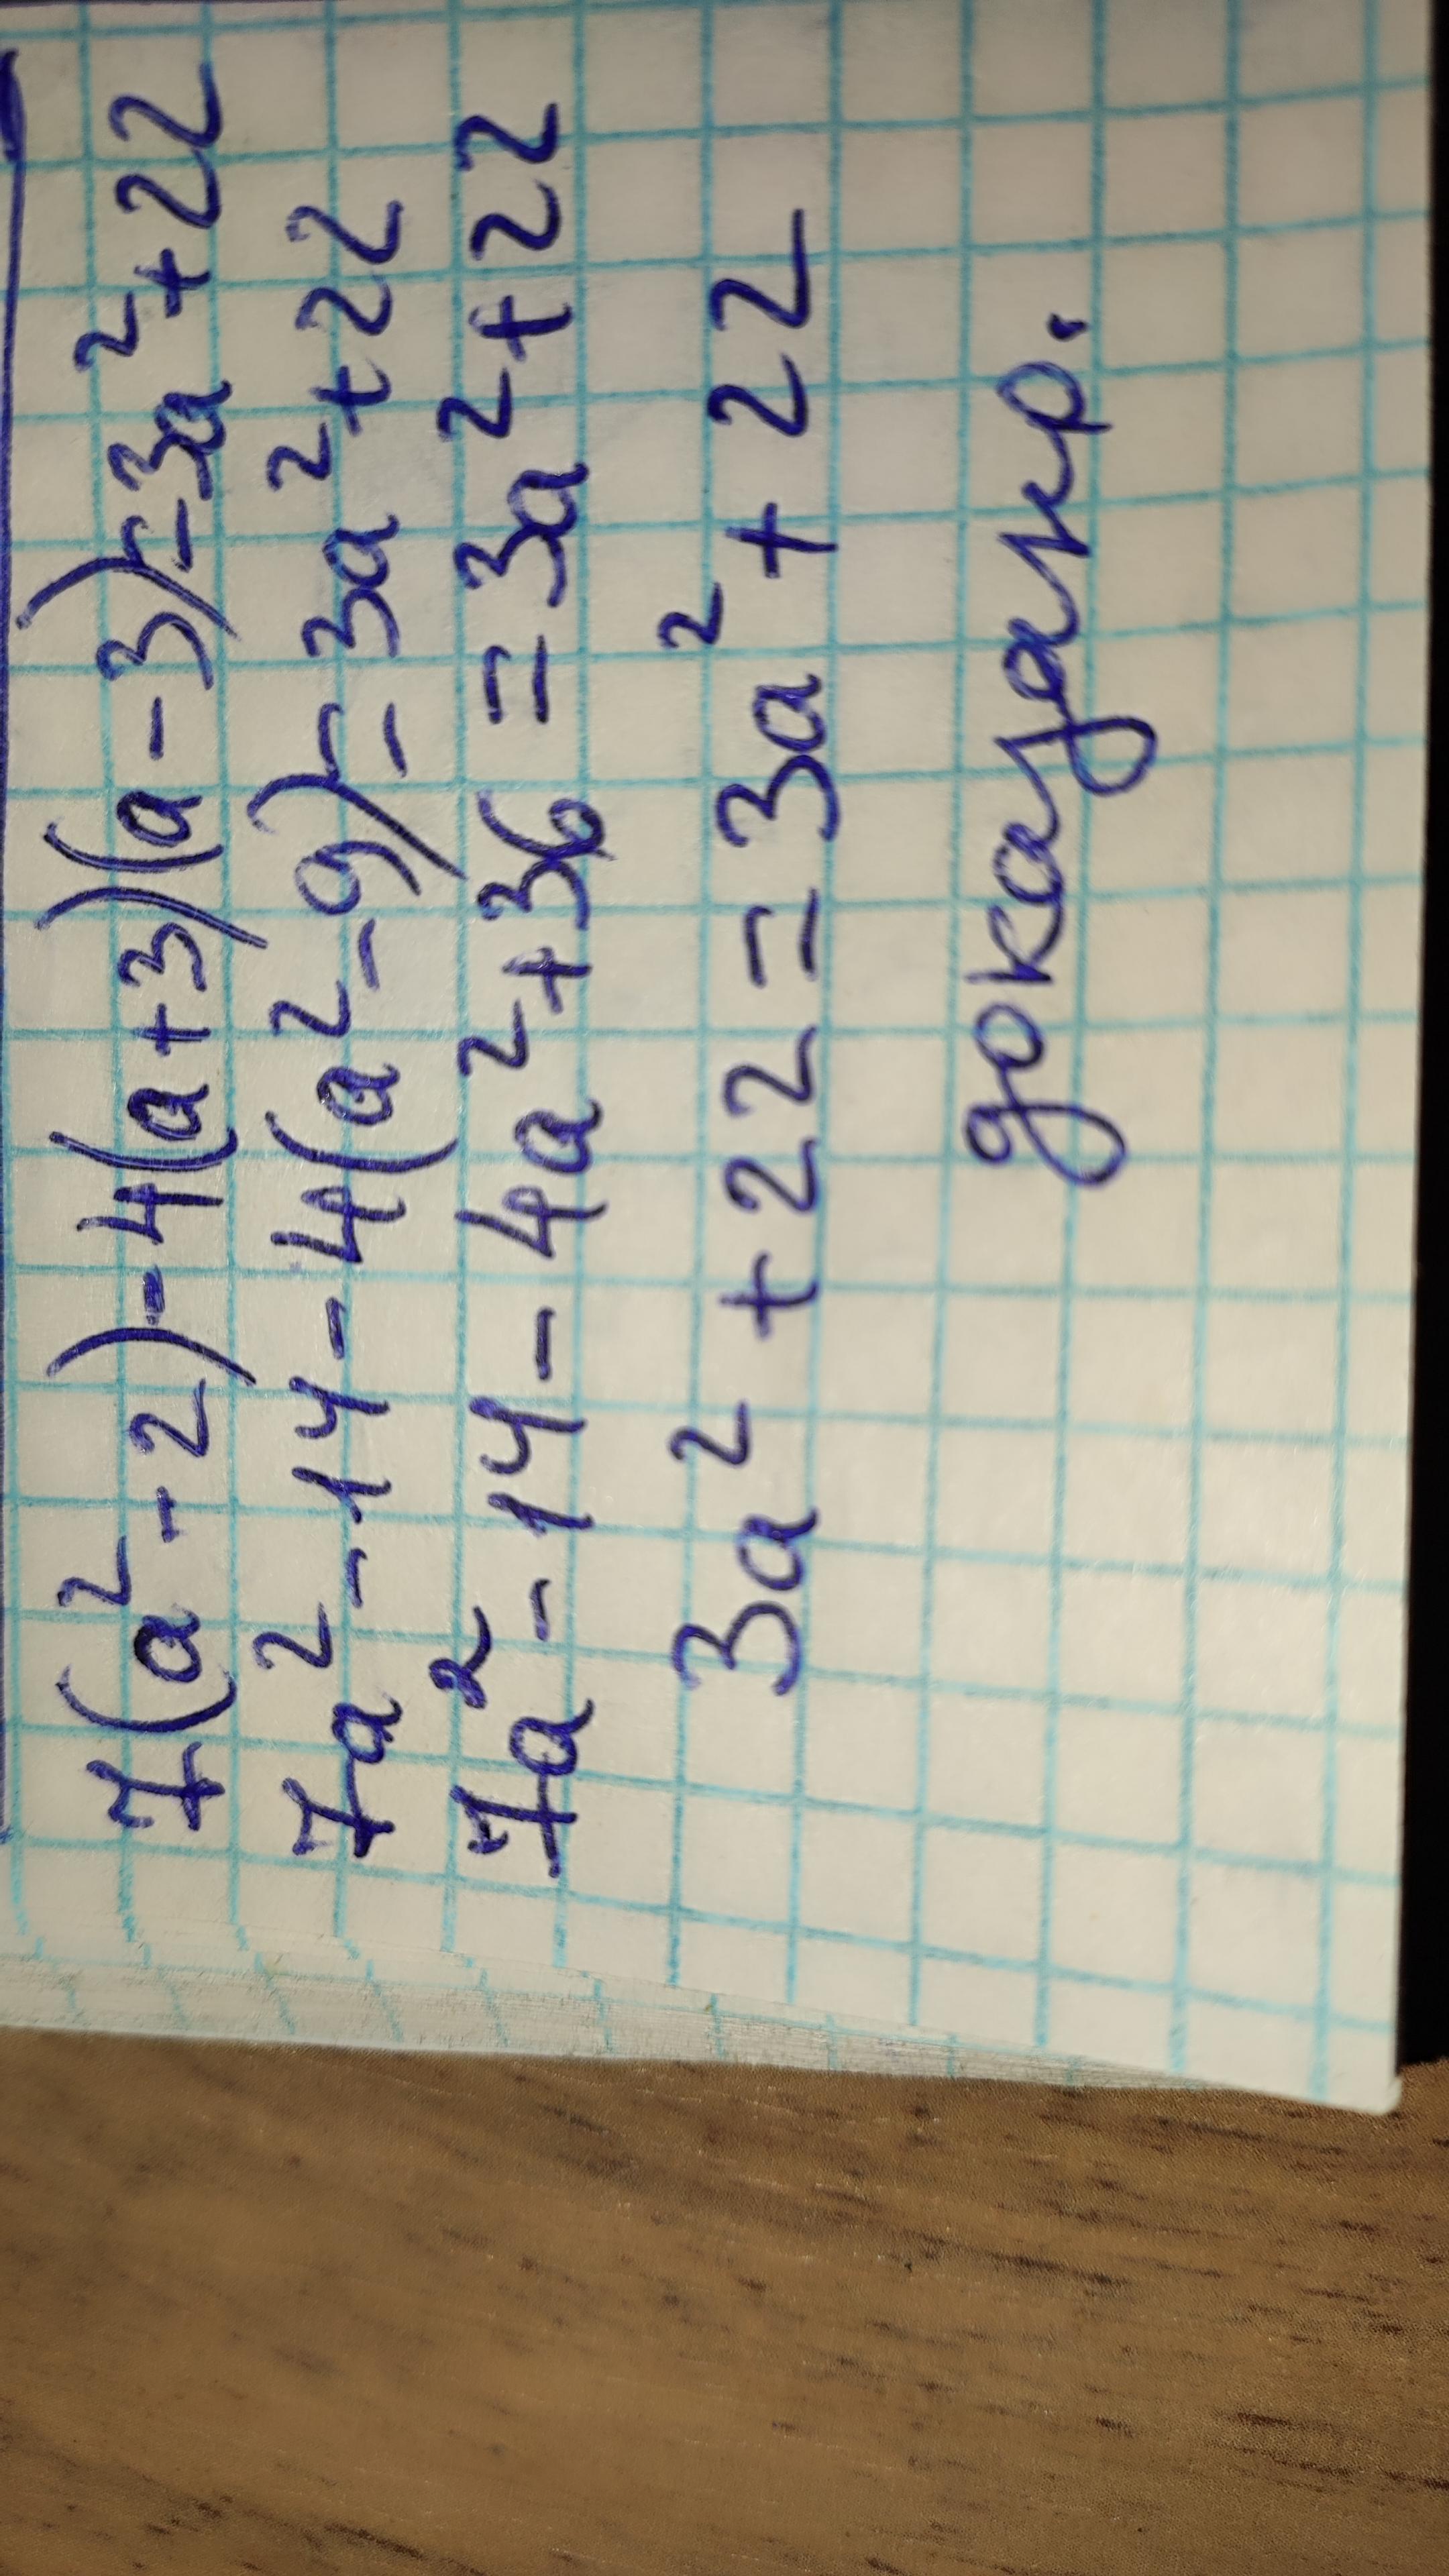 7(a²-2)-4(a+3)(a-3)=3a²+22
7a²-14-4(a²-9)=3a²+22
7a²-14-4a²+36=3a²+22
3a²+22=3a²+22
доказано.